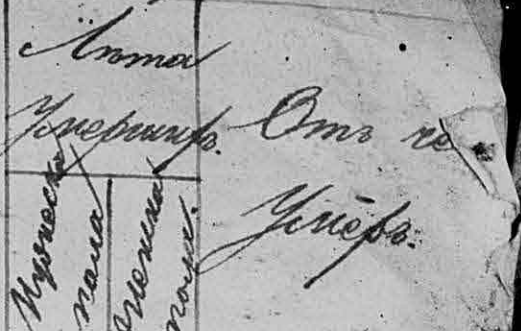 Лѣта
Умершихъ.
Мужеска
пола
женска
пола.
Отъ че
Умеръ.